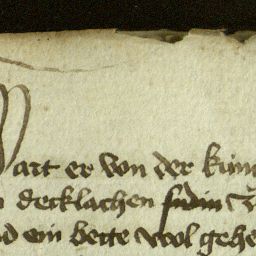 Wart er von der kün
decklachen sidin
d ein bette wol gehe